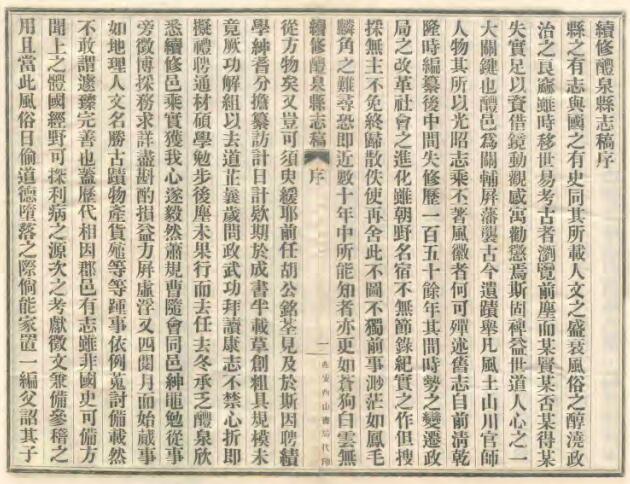 續修醴泉縣志稿序
縣之有志與國之有史同其所載人文之盛衰風俗之醇澆政
治之良窳雖時移世易考古者瀏覽前塵而某賢某否某得某
失實足以資借鏡動觀感寓勸懲焉斯固裨益世道人心之一
大關鍵也醴邑為關輔屏藩襲古今遺蹟舉凡風土山川官師
人物其所以光昭志乘不著風徽者何可殫述舊志自前清乾
隆時編纂後中間失修歷一百五十餘年其間時勢之變遷政
局之改革社會之進化雖朝野名宿不無節錄紀實之作但搜
採無主不免終歸散佚使再舍此不圖不獨前事渺茫如鳳毛
麟角之難尋恐即近數十年中所能知者亦更如蒼狗白雲無
續修醴泉縣志稿
序
一
西安西山書局代印
從方物矣又豈可須臾緩耶前任胡公銘荃見及於斯因聘績
學紳耆分擔纂訪計日計欵期於成書半載草創粗具規模未
竟厥功解組以去道茳襄歲問政武功拜讀康志不禁心折即
擬禮聘通材碩學勉步後塵未果行而去任去冬承乏醴泉欣
悉續修邑乘實獲我心遂毅然蕭規曹隨會同邑紳黽勉從事
旁徵博採務求詳盡斟酌損益力屏虛浮又四閱月而始蕆事
如地理人文名勝古蹟物產貨殖等等踵事依例蒐討備載然
不敢謂遽臻完善也蓋歷代相因郡邑有志雖非國史可備方
聞上之體國經野可探利病之源次之考獻徵文兼備參稽之
用且當此風俗日偷道德墮落之際倘能家置一編父詔其子